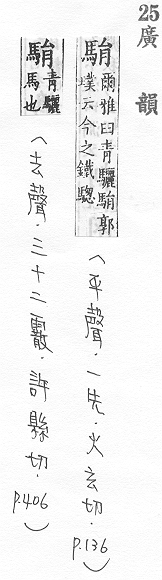 25廣韻
駽爾雅曰青驪駽郭璞云今之鐵驄
(平聲．一先．火玄切．p.136)
駽青驪馬也
(去聲．三十二霰．許縣切．p.406)